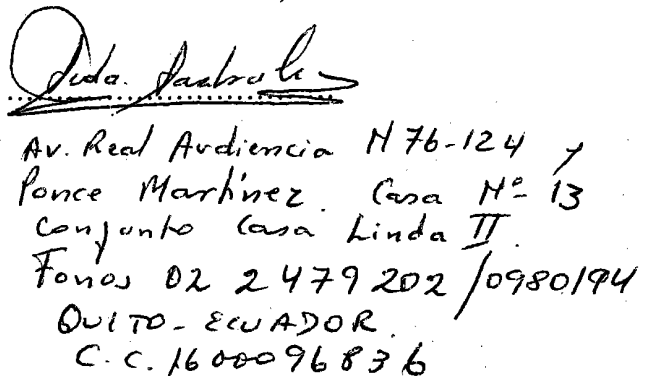 Av. Real Audiencia N76-124 y
Ponce Martínez. Casa Nº 13
Conjunto Casa Linda II.
Fonos 02 2479202/0980194
QUITO-ECUADOR.
C.C. 1600096836